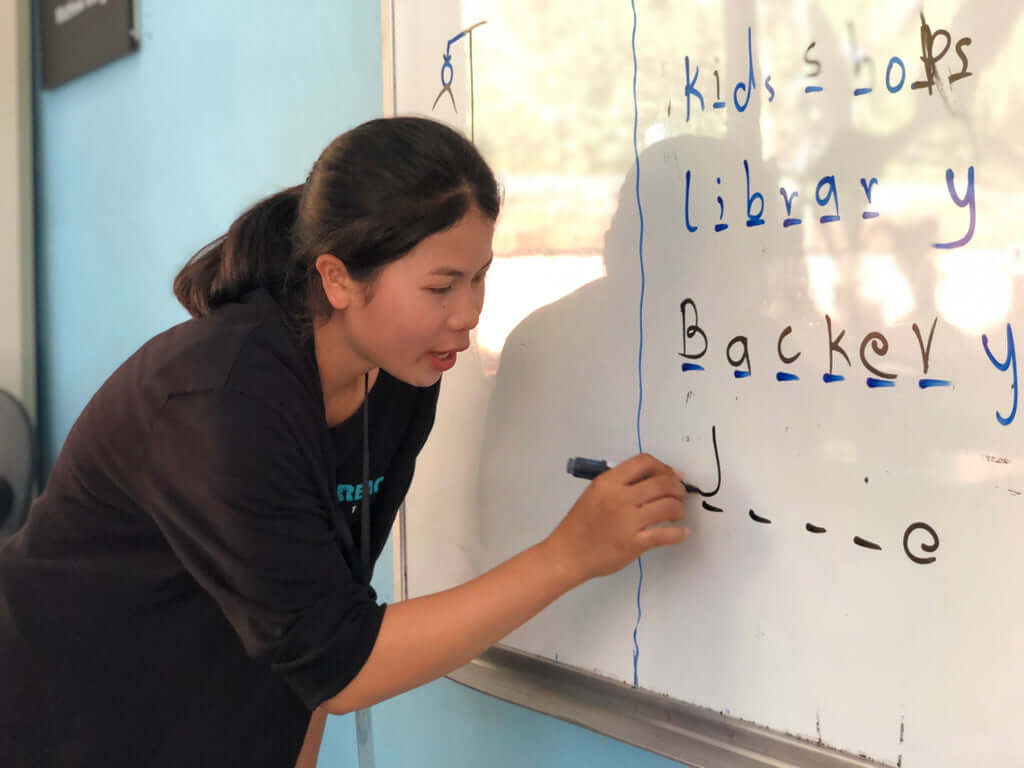 kids shops
library
Backery
J _ _ _ e